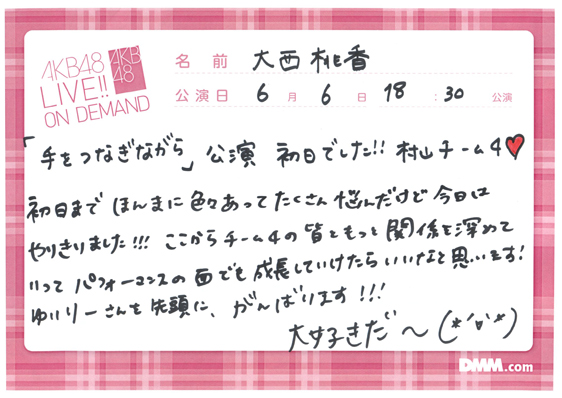 AKB48
LIVE!!
ON DEMAND
AKB
48
名前 大西桃香
公演日 6月6日 18:30 公演
「手をつなぎながら」公演 初日でした!! 村山チーム4♥
初日まで ほんまに色々あってたくさん悩んだけど今日は
やりきりました!!! ここからチーム4の皆ともっと関係を深めて
いって パフォーマンスの面でも成長していけたらいいなと思います!
ゆいりーさんを先頭に、がんばります!!!
大好きだ〜(*'v'*)
DMM.com